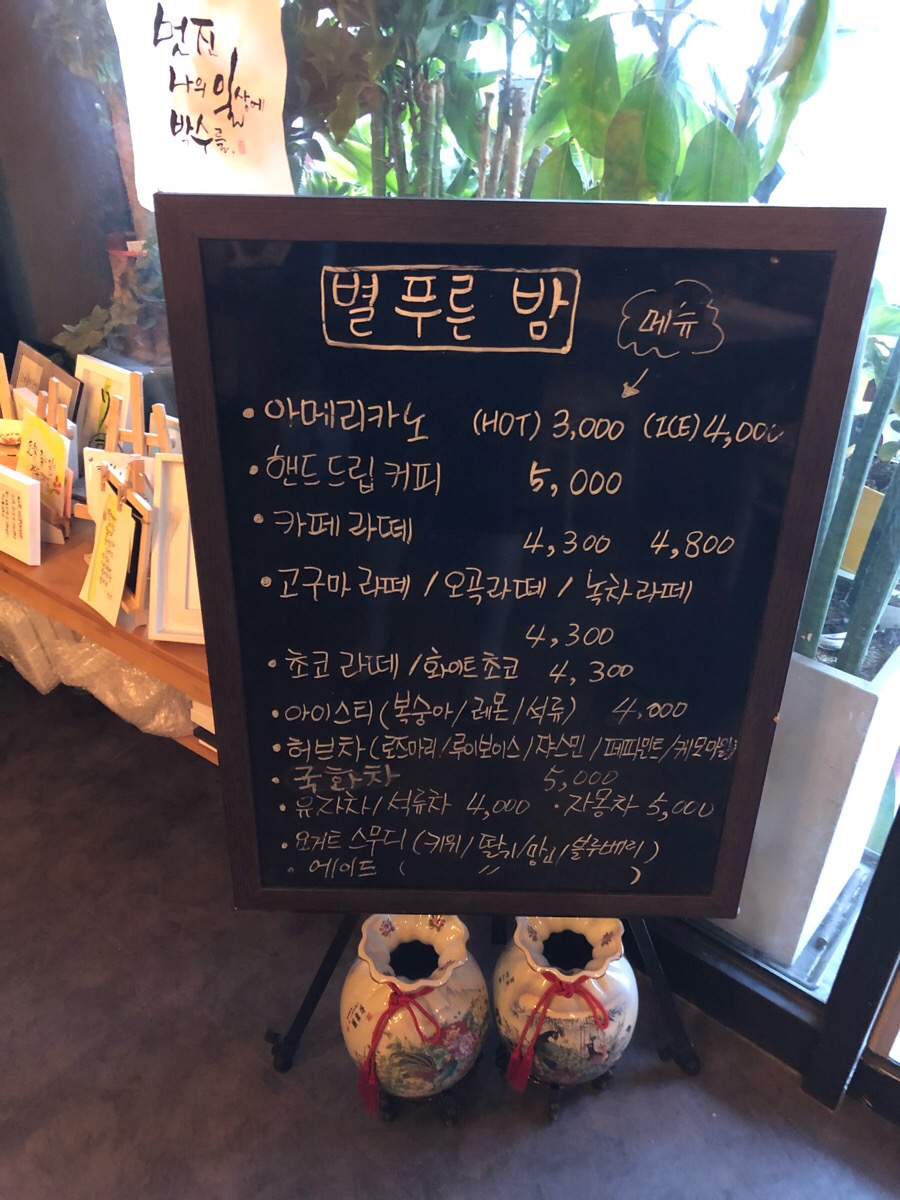 멋진
나의 일상에
박수를.
별 푸른 밤
메뉴
• 아메리카노 (HOT) 3,000 (ICE) 4,000
• 핸드드립 커피 5,000
• 카페 라떼 4,300 4,800
• 고구마 라떼 / 오곡라떼 / 녹차라떼
4,300
• 초코 라떼 / 화이트초코 4,300
• 아이스티 (복숭아 / 레몬 / 석류) 4,000
• 허브차 (로즈마리 / 루이보이스 / 쟈스민 / 페파민트 / 케모마일)
• 국화차 5,000
• 유자차 / 석류차 4,000 • 자몽차 5,000
• 요거트 스무디 (키위 / 딸기 / 망고 / 블루베리)
• 에이드 ( 〃 )